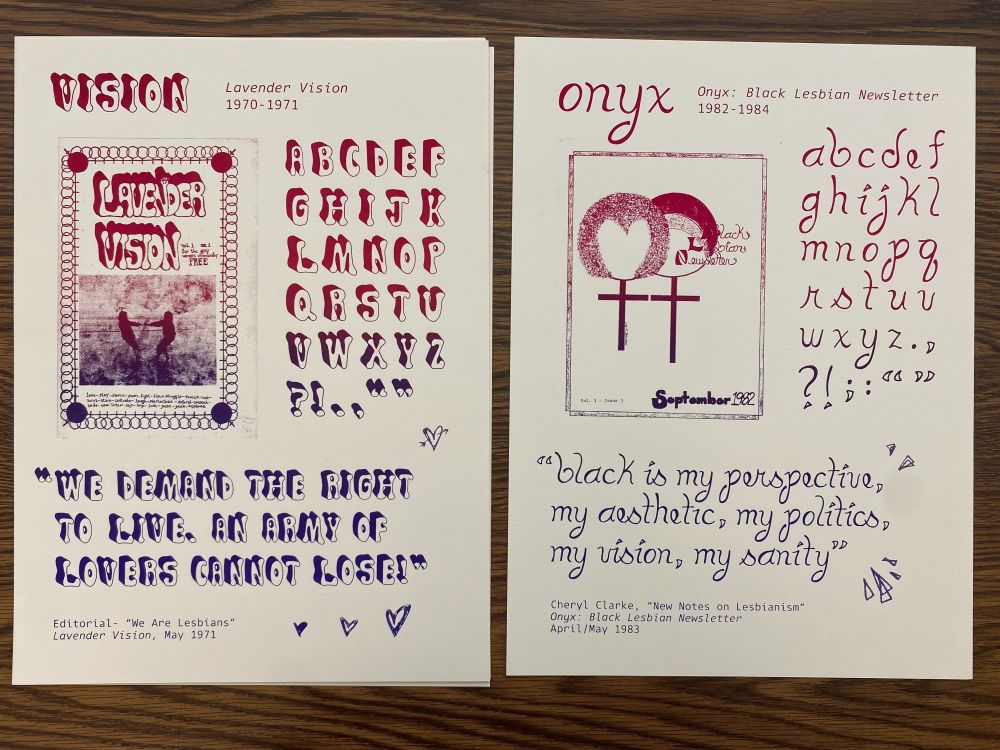 VISION
Lavender Vision
1970-1971
LAVENDER
VISION
vol. 1
FREE
ABCDEF
GHIJK
LMNOP
QRSTU
VWXYZ
?!.,“”
“WE DEMAND THE RIGHT
TO LIVE. AN ARMY OF
LOVERS CANNOT LOSE!”
Editorial- “We Are Lesbians”
Lavender Vision, May 1971
onyx
Onyx: Black Lesbian Newsletter
1982-1984
Newsletter
Vol. 1 - Issue
September 1982
abcdef
ghijkl
mnopq
rstuv
wxyz.,
?!;:“”
“black is my perspective,
my aesthetic, my politics,
my vision, my sanity”
Cheryl Clarke, “New Notes on Lesbianism”
Onyx: Black Lesbian Newsletter
April/May 1983